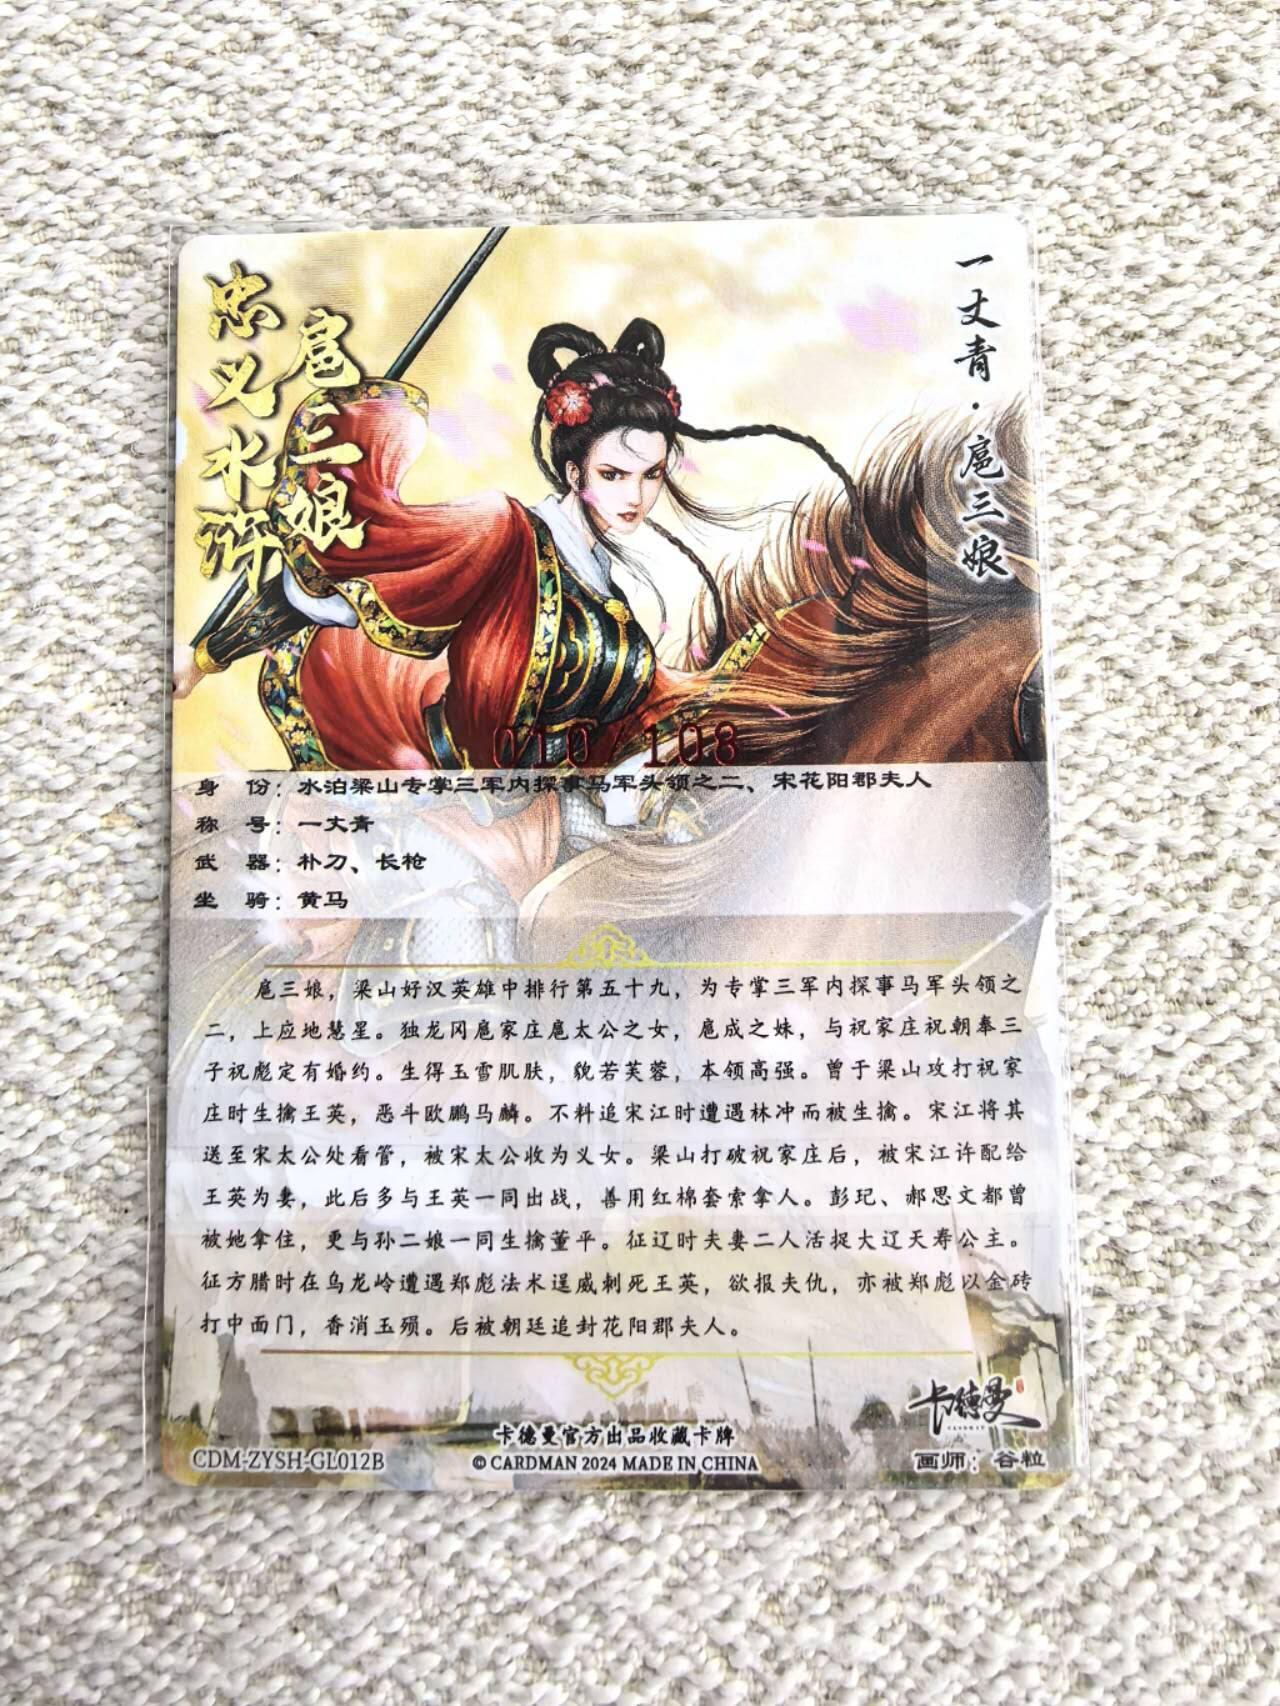 忠义水浒
扈三娘
一丈青·扈三娘
010/108
身 份：水泊梁山专掌三军内探事马军头领之二、宋花阳郡夫人
称 号：一丈青
武 器：朴刀、长枪
坐 骑：黄马
扈三娘，梁山好汉英雄中排行第五十九，为专掌三军内探事马军头领之
二，上应地慧星。独龙冈扈家庄扈太公之女，扈成之妹，与祝家庄祝朝奉三
子祝彪定有婚约。生得玉雪肌肤，貌若芙蓉，本领高强。曾于梁山攻打祝家
庄时生擒王英，恶斗欧鹏马麟。不料追宋江时遭遇林冲而被生擒。宋江将其
送至宋太公处看管，被宋太公收为义女。梁山打破祝家庄后，被宋江许配给
王英为妻，此后多与王英一同出战，善用红棉套索拿人。彭玘、郝思文都曾
被她拿住，更与孙二娘一同生擒董平。征辽时夫妻二人活捉大辽天寿公主。
征方腊时在乌龙岭遭遇郑彪法术逞威刺死王英，欲报夫仇，亦被郑彪以金砖
打中面门，香消玉殒。后被朝廷追封花阳郡夫人。
卡德曼
卡德曼官方出品收藏卡牌
CDM-ZYSH-GL012B
© CARDMAN 2024 MADE IN CHINA
画师：谷粒